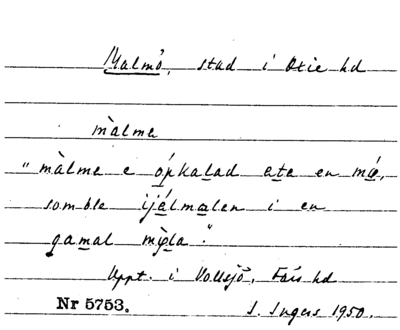 Malmö, stad i Oxie hd
màlme
"màlme e ópkalad ate en mǿ,
somble ijálmalen i en
gamal mỳla."
Uppt. i Vollsjö, Färs hd
Nr 5753. I. Ingers 1950.